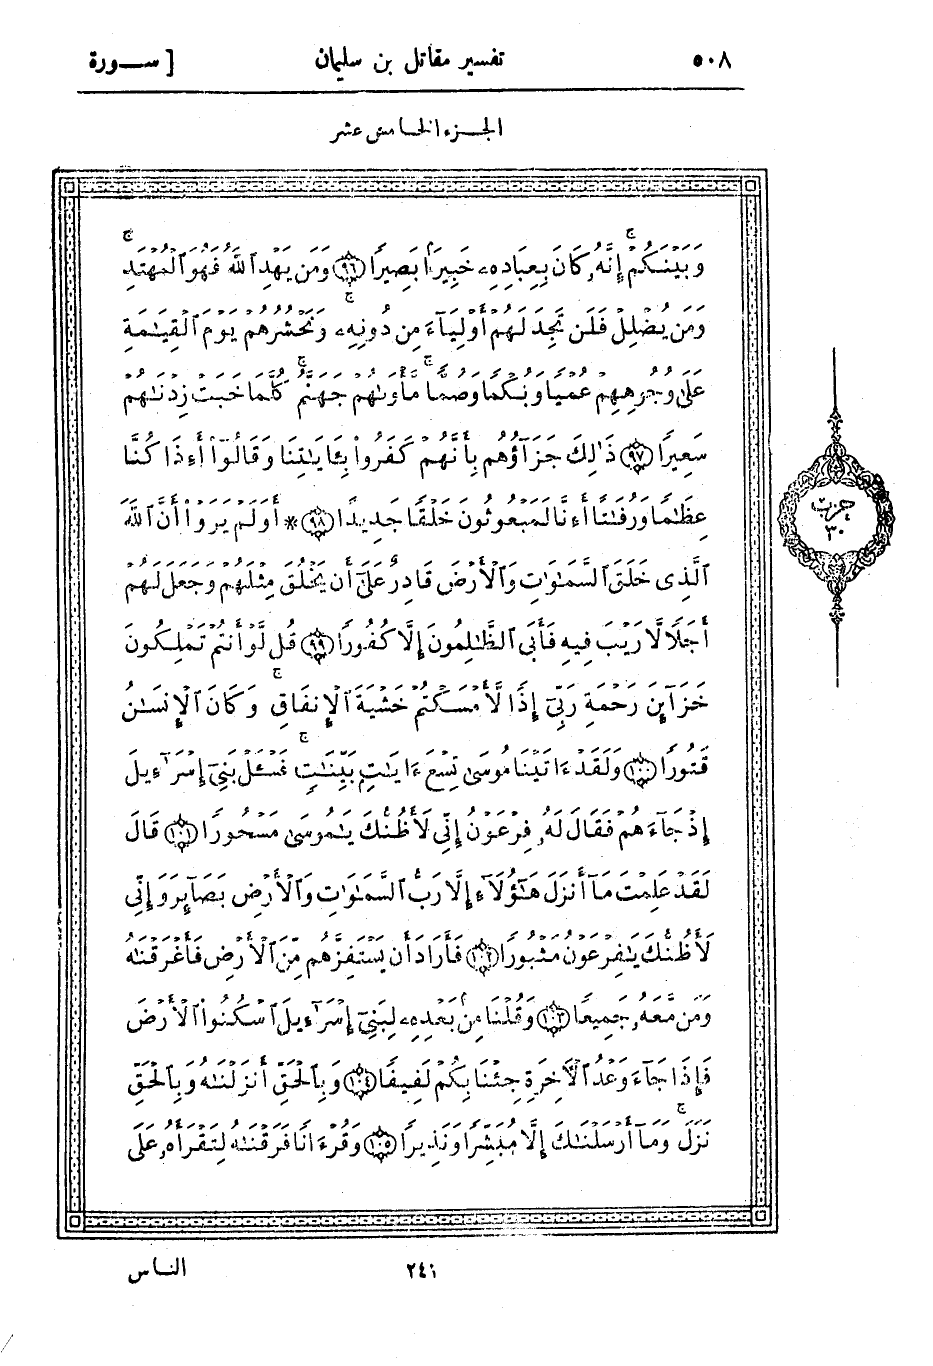 ٥٠٨ تفسير مقاتل بن سليمان [ ســورة
الجـزء الخـامس عشر
وَبَيْنَكُمْ إِنَّهُۥ كَانَ بِعِبَادِهِۦ خَبِيرَۢا بَصِيرًا ۝٩٦ وَمَن يَهْدِ ٱللَّهُ فَهُوَ ٱلْمُهْتَدِ
وَمَن يُضْلِلْ فَلَن تَجِدَ لَهُمْ أَوْلِيَآءَ مِن دُونِهِۦ وَنَحْشُرُهُمْ يَوْمَ ٱلْقِيَٰمَةِ
عَلَىٰ وُجُوهِهِمْ عُمْيًا وَبُكْمًا وَصُمًّا مَّأْوَىٰهُمْ جَهَنَّمُ كُلَّمَا خَبَتْ زِدْنَٰهُمْ
سَعِيرًا ۝٩٧ ذَٰلِكَ جَزَآؤُهُم بِأَنَّهُمْ كَفَرُوا۟ بِـَٔايَٰتِنَا وَقَالُوٓا۟ أَءِذَا كُنَّا
عِظَٰمًا وَرُفَٰتًا أَءِنَّا لَمَبْعُوثُونَ خَلْقًا جَدِيدًا ۝٩٨ * أَوَلَمْ يَرَوْا۟ أَنَّ ٱللَّهَ
ٱلَّذِى خَلَقَ ٱلسَّمَٰوَٰتِ وَٱلْأَرْضَ قَادِرٌ عَلَىٰٓ أَن يَخْلُقَ مِثْلَهُمْ وَجَعَلَ لَهُمْ
أَجَلًا لَّا رَيْبَ فِيهِ فَأَبَى ٱلظَّٰلِمُونَ إِلَّا كُفُورًا ۝٩٩ قُل لَّوْ أَنتُمْ تَمْلِكُونَ
خَزَآئِنَ رَحْمَةِ رَبِّىٓ إِذًا لَّأَمْسَكْتُمْ خَشْيَةَ ٱلْإِنفَاقِ وَكَانَ ٱلْإِنسَٰنُ
قَتُورًا ۝١٠٠ وَلَقَدْ ءَاتَيْنَا مُوسَىٰ تِسْعَ ءَايَٰتٍۭ بَيِّنَٰتٍ فَسْـَٔلْ بَنِىٓ إِسْرَٰٓءِيلَ
إِذْ جَآءَهُمْ فَقَالَ لَهُۥ فِرْعَوْنُ إِنِّى لَأَظُنُّكَ يَٰمُوسَىٰ مَسْحُورًا ۝١٠١ قَالَ
لَقَدْ عَلِمْتَ مَآ أَنزَلَ هَٰٓؤُلَآءِ إِلَّا رَبُّ ٱلسَّمَٰوَٰتِ وَٱلْأَرْضِ بَصَآئِرَ وَإِنِّى
لَأَظُنُّكَ يَٰفِرْعَوْنُ مَثْبُورًا ۝١٠٢ فَأَرَادَ أَن يَسْتَفِزَّهُم مِّنَ ٱلْأَرْضِ فَأَغْرَقْنَٰهُ
وَمَن مَّعَهُۥ جَمِيعًا ۝١٠٣ وَقُلْنَا مِنۢ بَعْدِهِۦ لِبَنِىٓ إِسْرَٰٓءِيلَ ٱسْكُنُوا۟ ٱلْأَرْضَ
فَإِذَا جَآءَ وَعْدُ ٱلْءَاخِرَةِ جِئْنَا بِكُمْ لَفِيفًا ۝١٠٤ وَبِٱلْحَقِّ أَنزَلْنَٰهُ وَبِٱلْحَقِّ
نَزَلَ وَمَآ أَرْسَلْنَٰكَ إِلَّا مُبَشِّرًا وَنَذِيرًا ۝١٠٥ وَقُرْءَانًا فَرَقْنَٰهُ لِتَقْرَأَهُۥ عَلَى
حزب
٣٠
٢٤١ النـاس